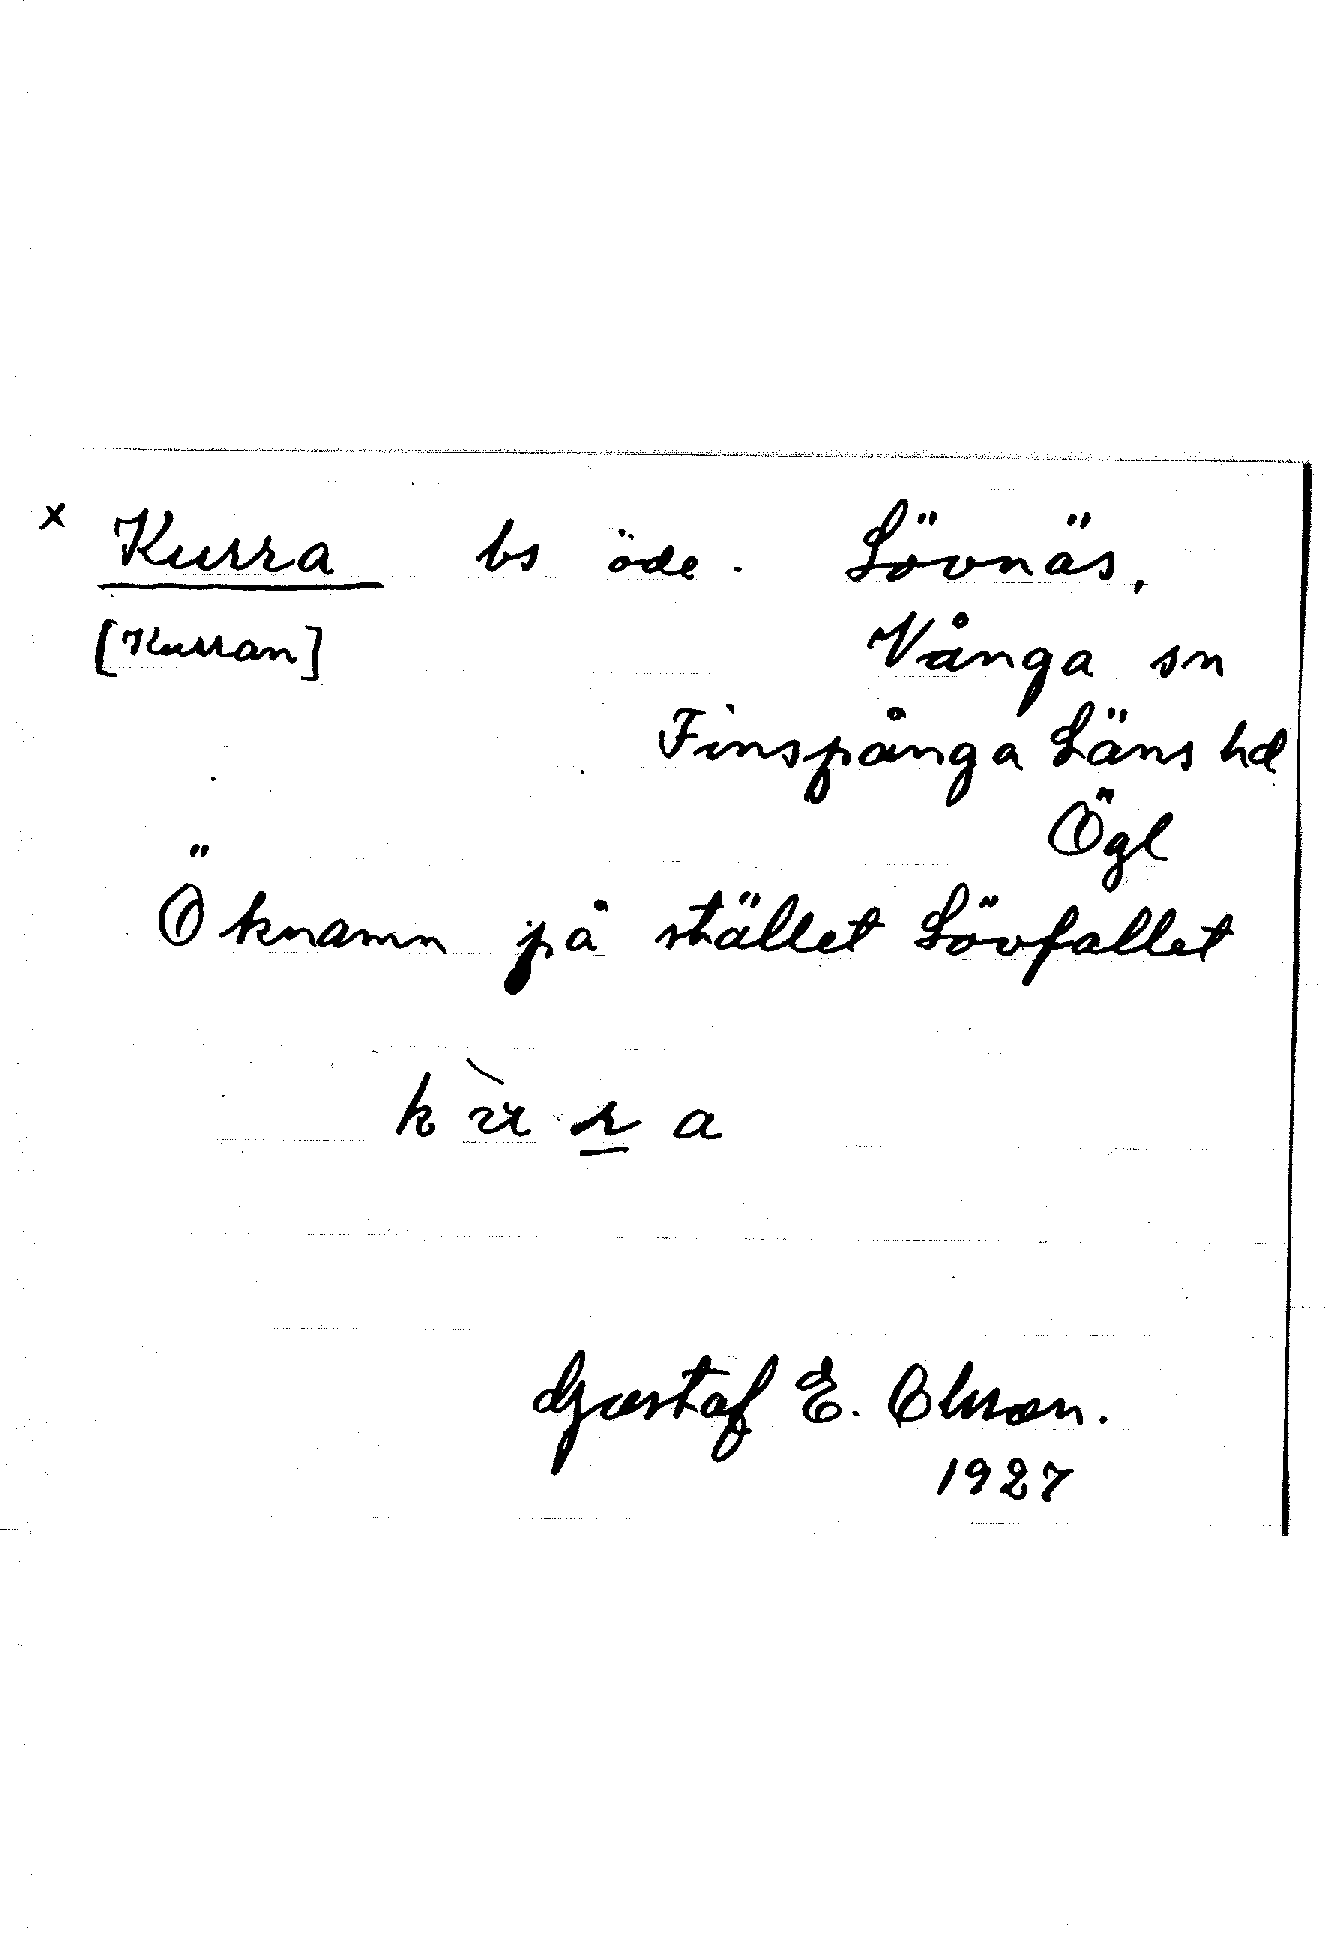 x Kurra bs öde. Lövnäs,
[Kurran] Vånga sn
Finspånga Läns hd
Ögl
Öknamn på stället Lövfallet
k ù r a
Gustaf E. Olsson.
1927